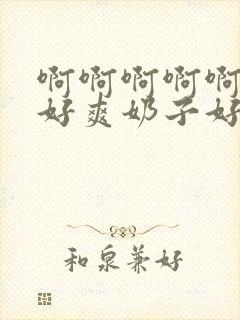 啊啊啊啊啊
好爽奶子好
和泉兼好